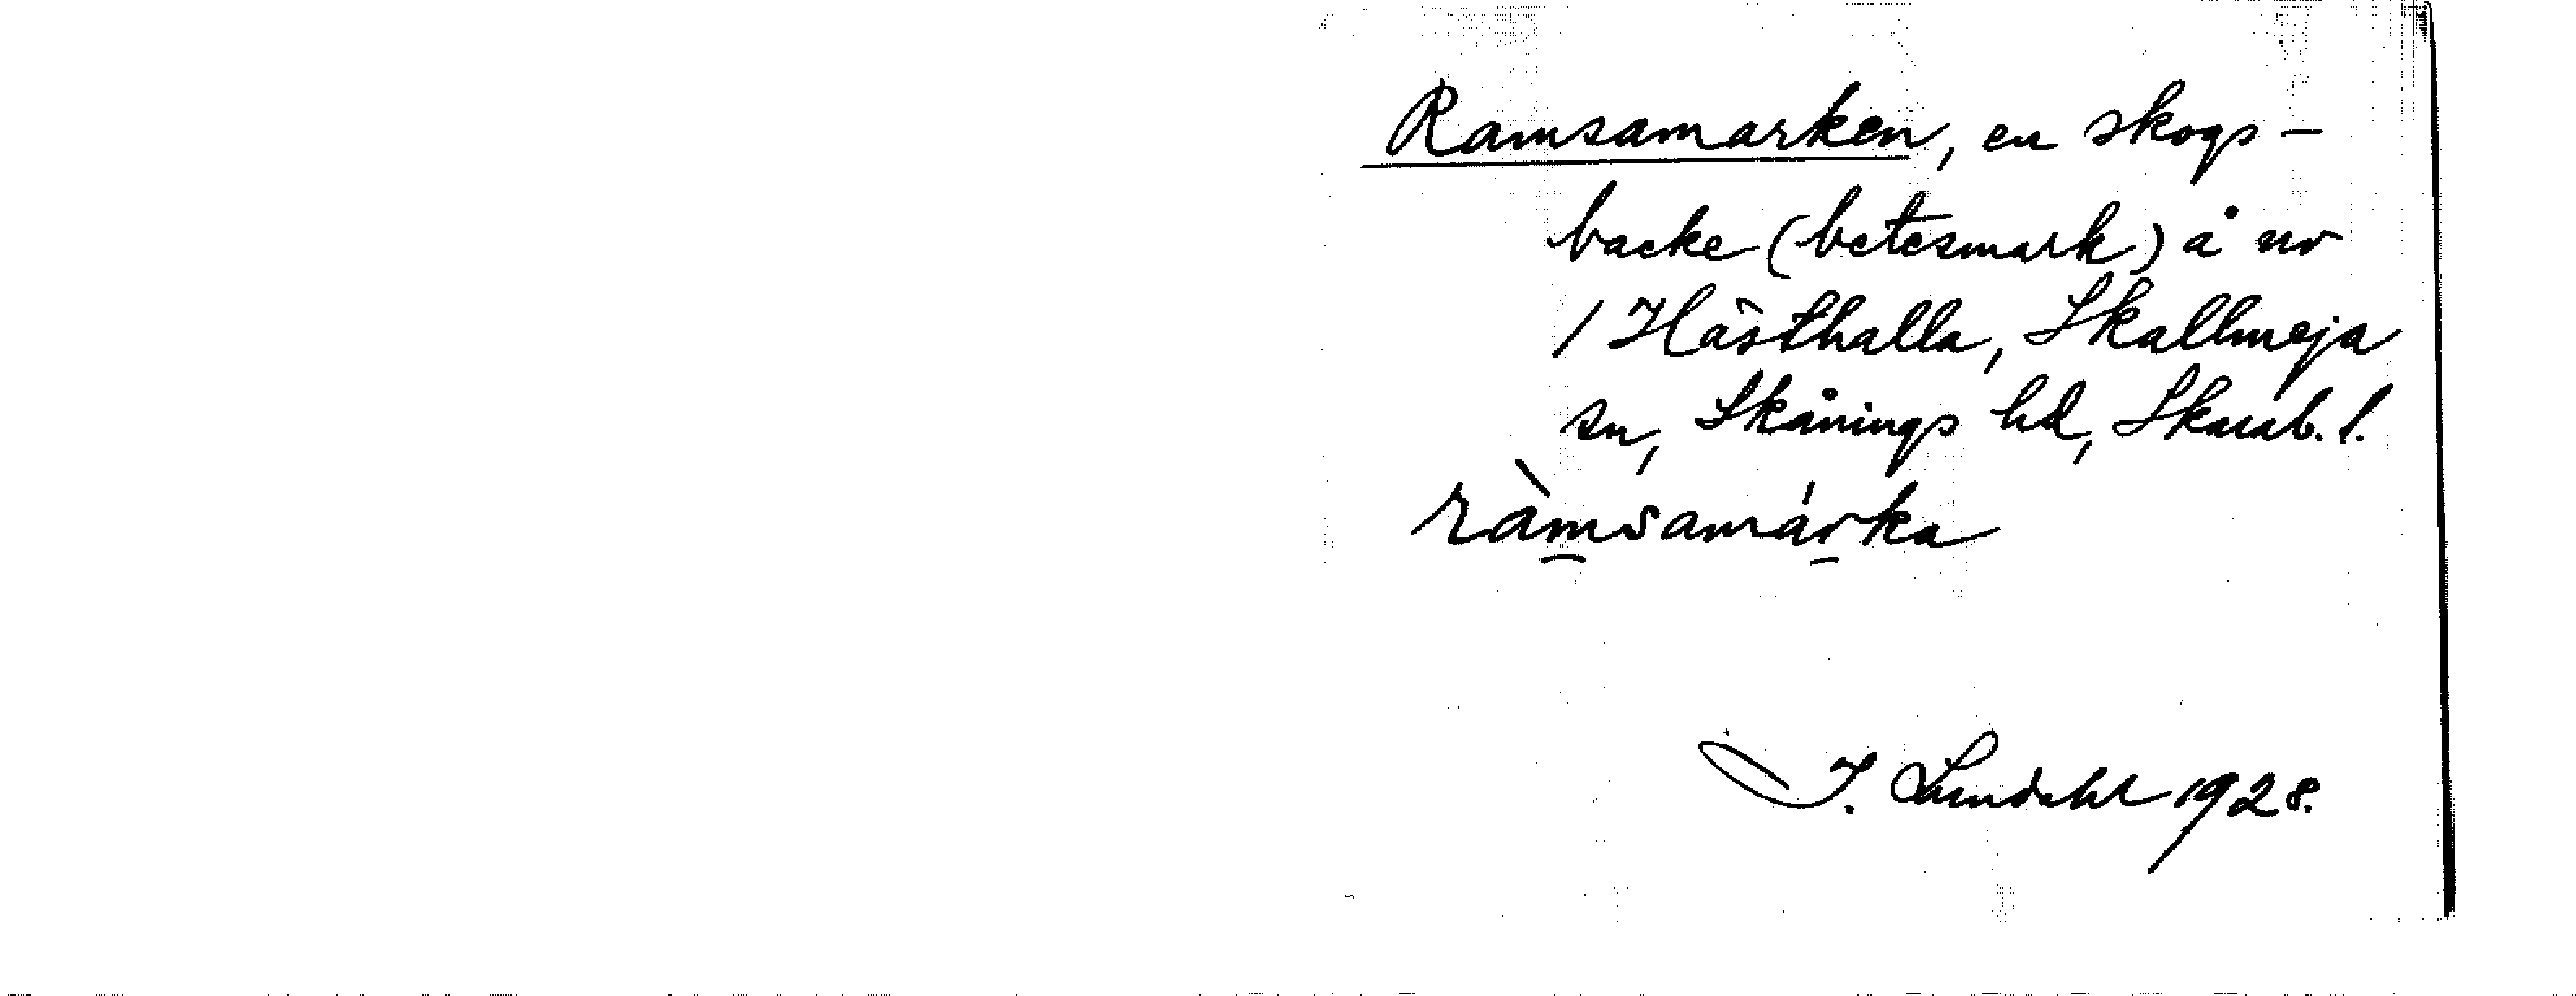 Ramsamarken, en skogs-
backe (betesmark) å nr
1 Hästhalla, Skallmeja
sn, Skånings hd, Skarab. l.
ràmsamárka
J. Lundahl 1928.